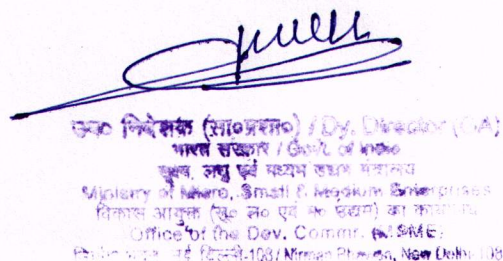 उप० निदेशक (सा०प्रशा०) / Dy. Director (GA)
भारत सरकार / Govt. of India
सूक्ष्म, लघु एवं मध्यम उद्यम मंत्रालय
Ministry of Micro, Small & Medium Enterprises
विकास आयुक्त (सू० ल० एवं म० उद्यम) का कार्यालय
Office of the Dev. Commr. (MSME)
निर्माण भवन, नई दिल्ली-108 / Nirman Bhawan, New Delhi-108